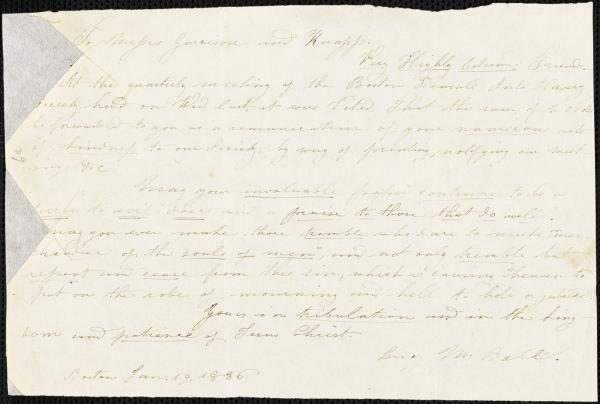 To Messrs Garrison and Knapp:
Very Highly Esteem Friends.
At the quarterly meeting of the Boston Female Anti Slavery
Society held on Wed last, it was Voted, That the sum of
be forwarded to you as a remuneration of your numerous acts
of kindness to our Society, by way of printing, notifying our meet
ings &c.
May your invaluable paper continue to be a
terror to evil doers and a praise to those that do well.
may you ever make those tremble who dare to make mer
chandise of the souls of men", and not only tremble but
repent and cease from the sin, which is causing "heaven to
put on the robe of mourning and hell to hold a jubilee.
Yours in tribulation and in the king
dom and patience of Jesus Christ.
Lucy M. Ball.
Boston Jan. 19, 1836